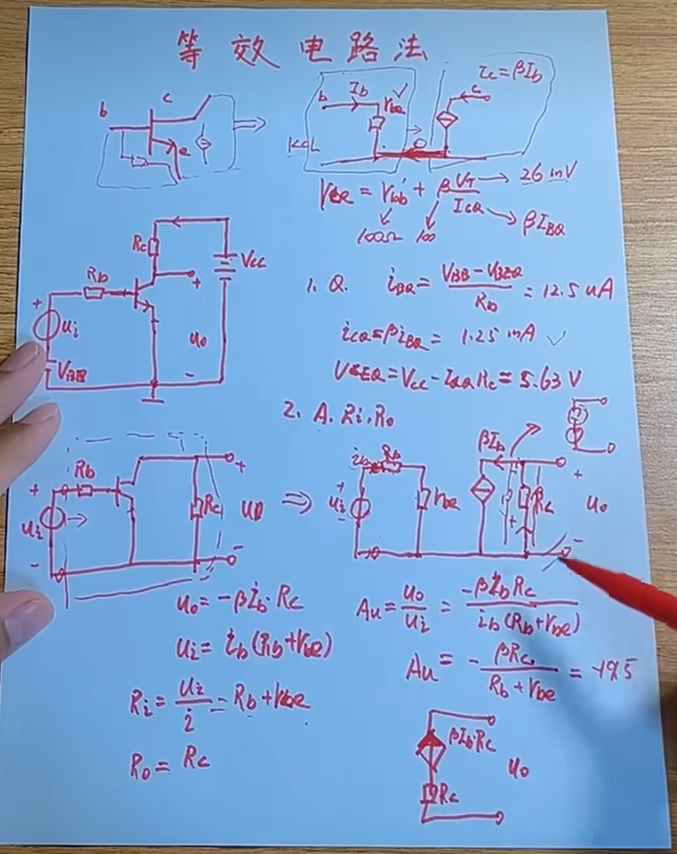 等效电路法
b c e
b I_b r_be c I_c=βI_b
KCL
r_be = r_bb' + βV_T/I_CQ → 26 mV
100Ω 100 βI_BQ
R_c V_cc
R_b + u_i V_BB + u_o -
1. Q. i_BQ = (V_BB - V_BEQ)/R_b = 12.5 uA
i_CQ = βi_BQ = 1.25 mA
V_CEQ = V_cc - I_CQ R_c = 5.63 V
2. A. R_i. R_o
+ u_i - R_b R_c + u_o -
⇒ + u_i - i_b R_b r_be βI_b R_c + u_o -
u_o = -βi_b·R_c
u_i = i_b(R_b+r_be)
R_i = u_i/i = R_b + r_be
R_o = R_c
A_u = u_o/u_i = -βi_bR_c/i_b(R_b+r_be)
A_u = -βR_c/(R_b+r_be)
βI_b·R_c
R_c u_o